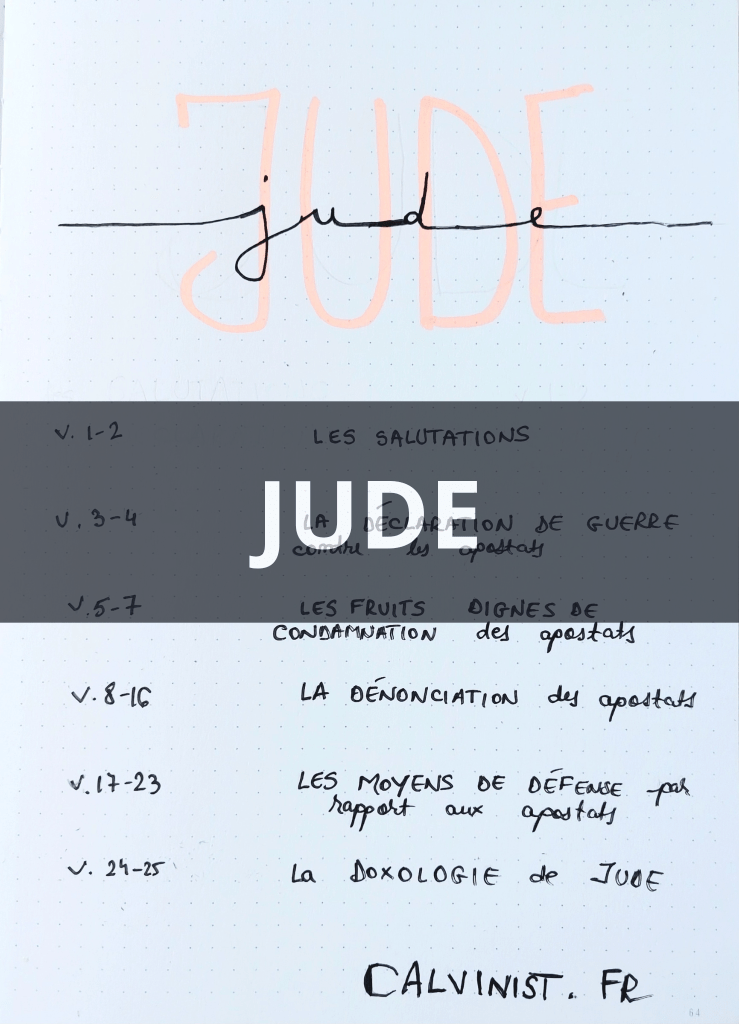 JUDE
jude
v. 1-2 LES SALUTATIONS
v. 3-4 LA DÉCLARATION DE GUERRE
contre les apostats
JUDE
v. 5-7 LES FRUITS DIGNES DE
CONDAMNATION des apostats
v. 8-16 LA DÉNONCIATION des apostats
v. 17-23 LES MOYENS DE DÉFENSE par
rapport aux apostats
v. 24-25 La DOXOLOGIE de JUDE
CALVINIST. FR
64